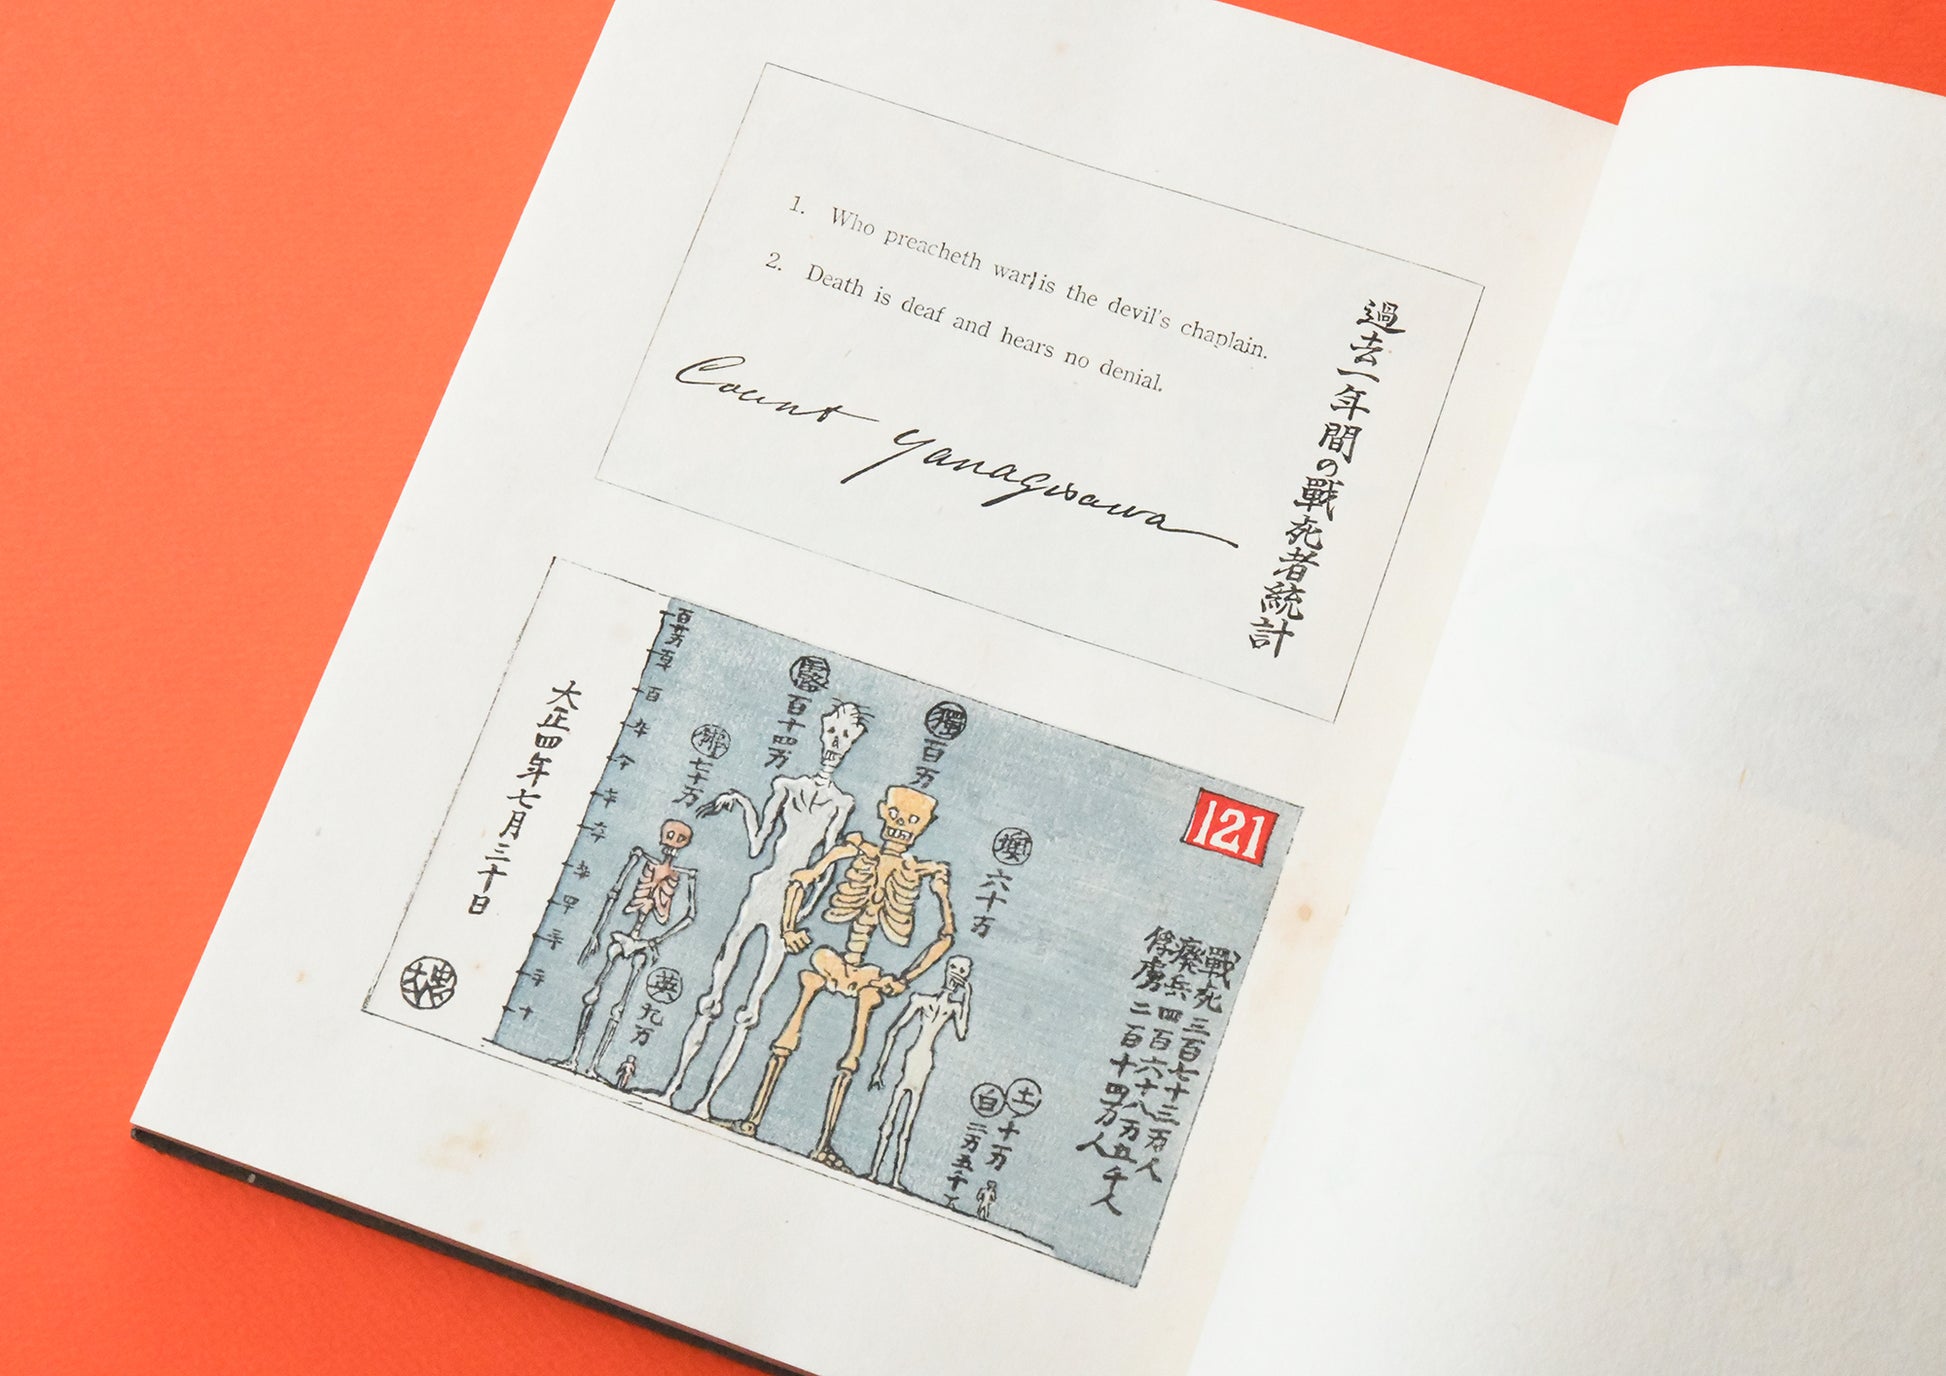 1. Who preacheth war, is the devil's chaplain.
2. Death is deaf and hears no denial.
Count Yanagisawa
過去一年間の戰死者統計
121
戰死三百七十三万人
廃兵四百六十八万五千人
俘虜二百十四万人
土
十一万
白
二万五千人
墺
六十万
獨
百万
露
百十四万
英
九万
佛
七十万
百
十
大正四年七月三十日